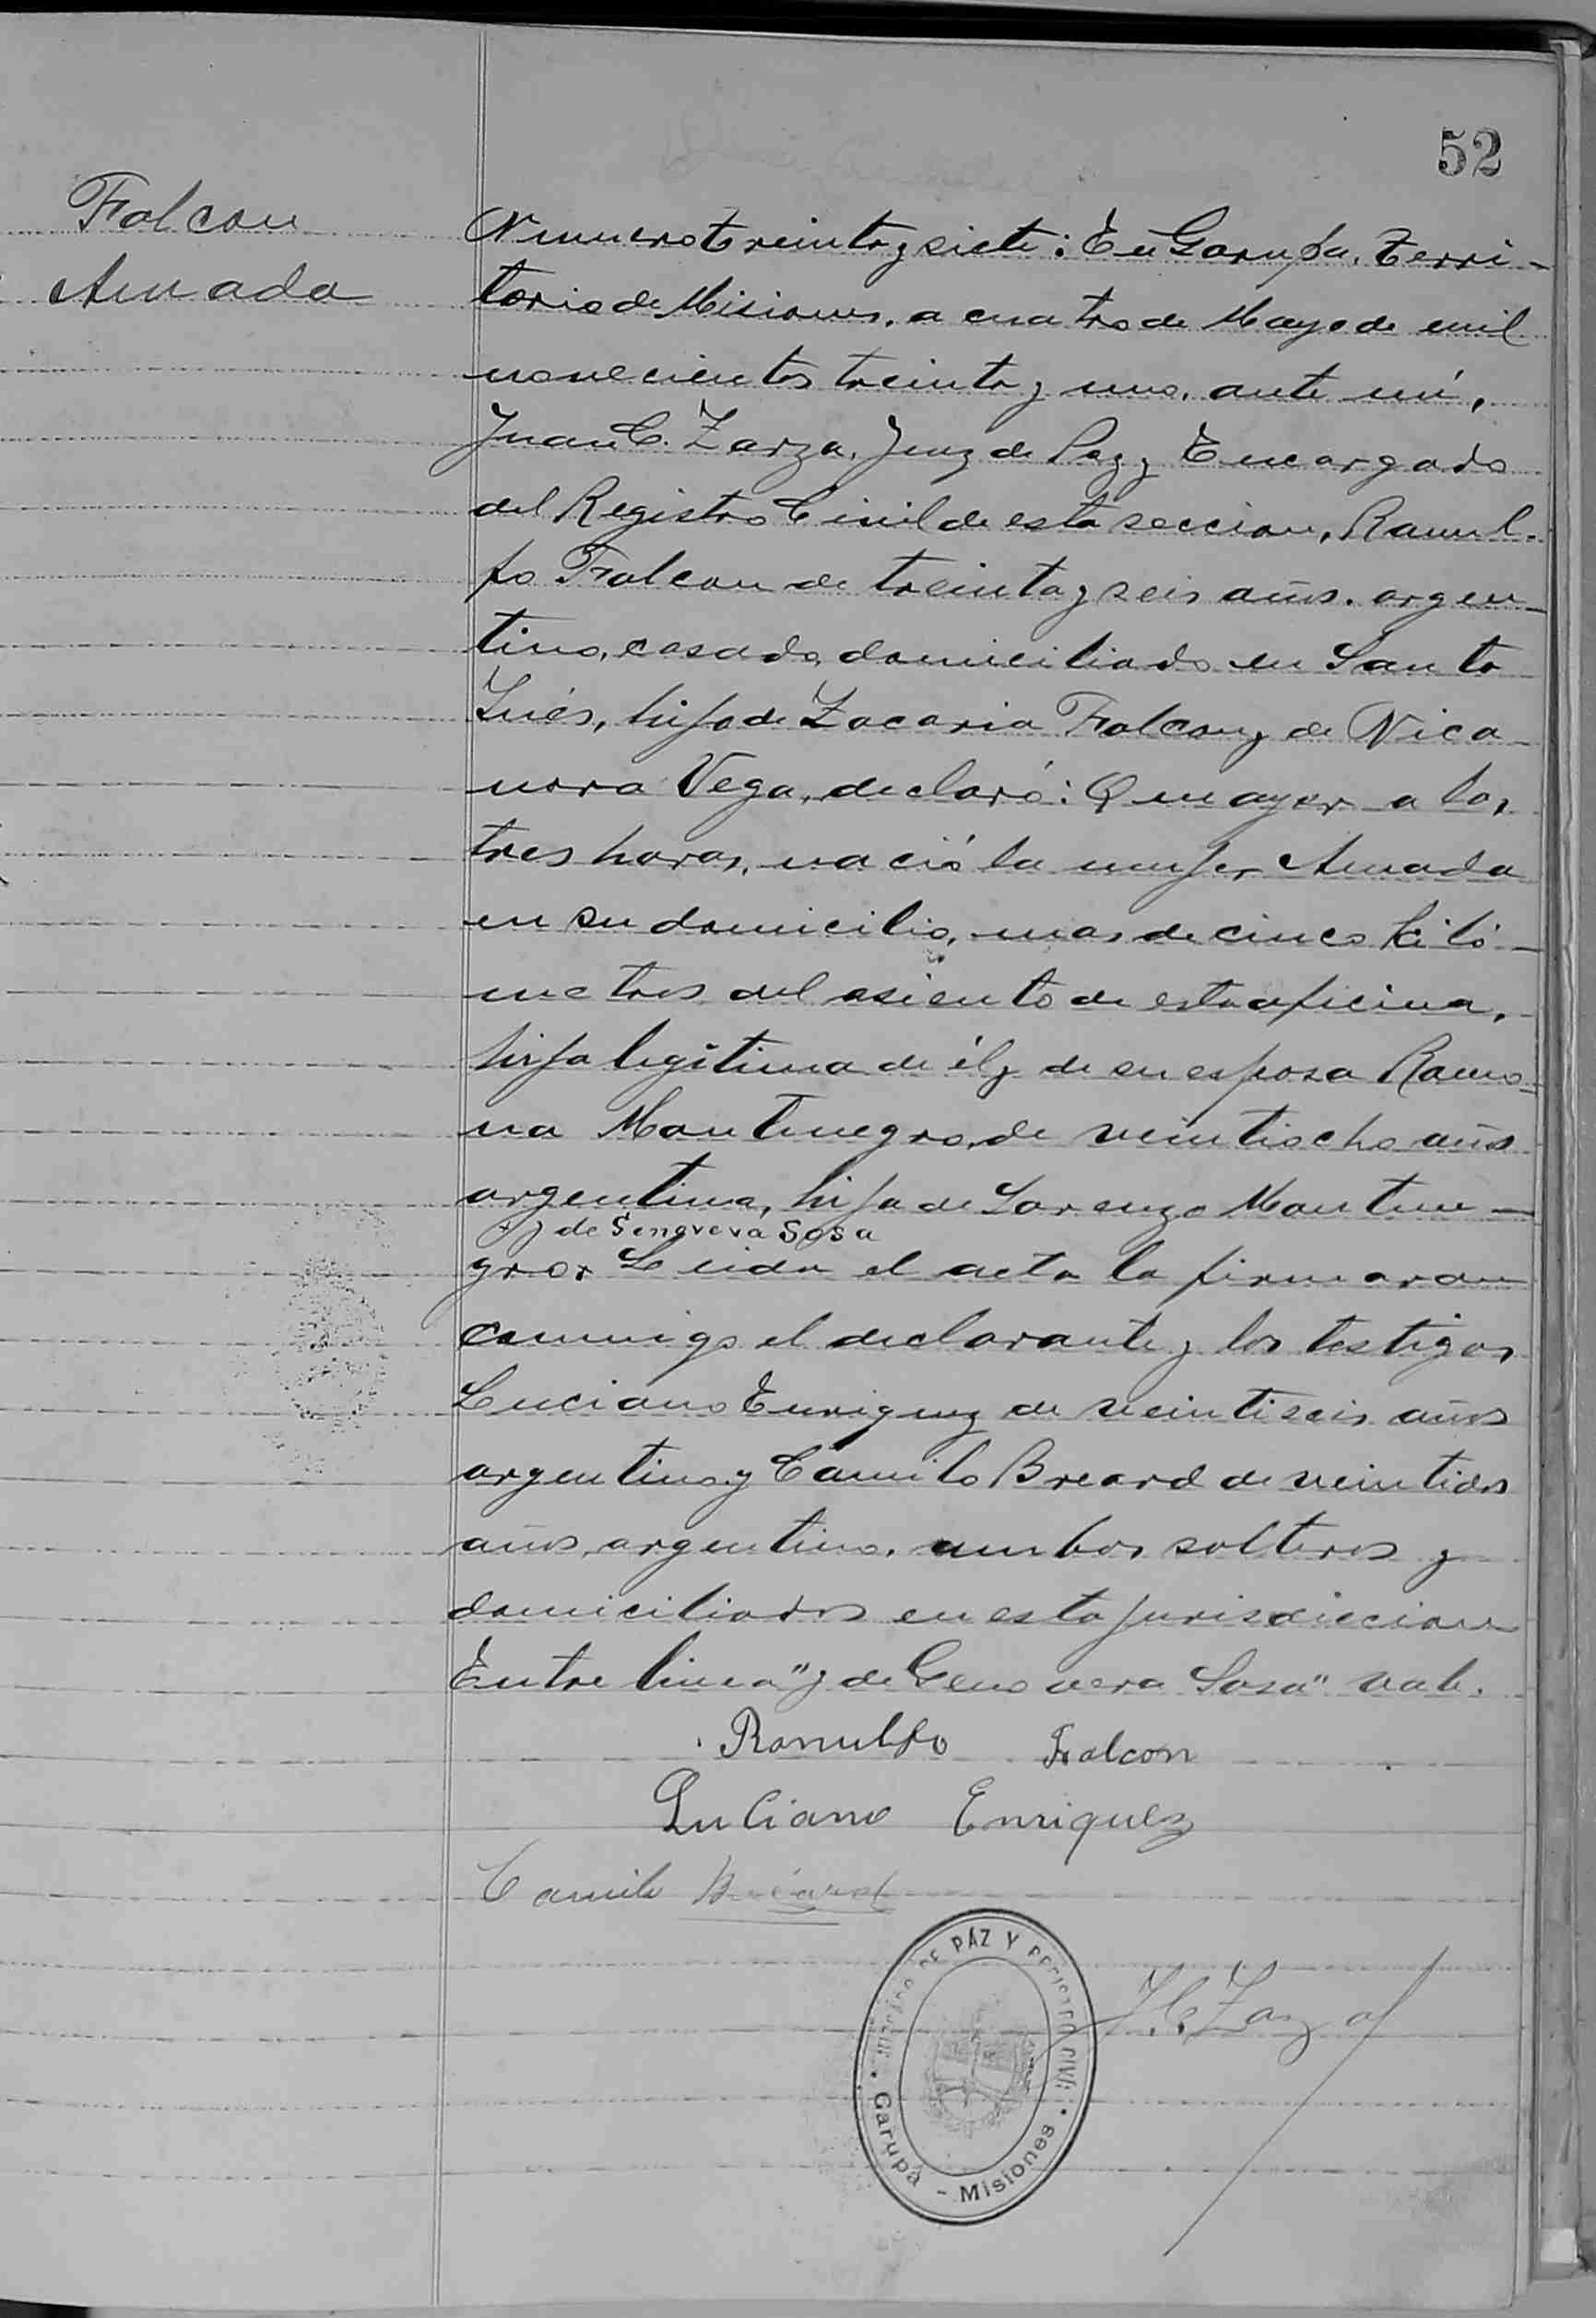 52
Falcon
Amada
Numero treinta y siete: En Garupa, Terri-
torio de Misiones, a cuatro de Mayo de mil
novecientos treinta y uno, ante mí,
Juan C. Zarza, Juez de Paz y Encargado
del Registro Civil de esta seccion, Ranul-
fo Falcon de treinta y seis años, argen-
tino, casado, domiciliado en Santa
Inés, hijo de Zacaria Falcon y de Nica-
nora Vega, declaró: Que ayer a las
tres horas, nació la mujer Amada
en su domicilio, mas de cinco kiló-
metros del asiento de esta oficina,
hija legítima de él y de su esposa Ramo-
na Montenegro, de veintiocho años
argentina, hija de Lorenzo Montene-
y de Genoveva Sosa
gro x Leida el acta la firmaron
conmigo el declarante y los testigos
Luciano Enriquez de veintiseis años
argentino y Camilo Breard de veintidos
años, argentino, ambos solteros y
domiciliados en esta jurisdiccion
Entre linea "y de Genoveva Sosa" vale.
Ranulfo Falcon
Luciano Enriquez
Camilo Breard
J.C. Zarza
JUZGADO DE PAZ Y REGISTRO CIVIL
Garupá - Misiones